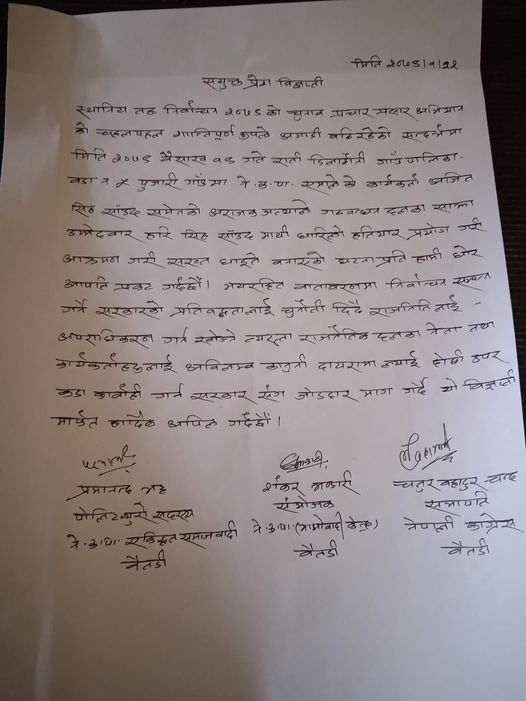 मिति २०७९।१।२२
संयुक्त प्रेस विज्ञप्ती
स्थानिय तह निर्वाचन २०७९ को चुनाव प्रचार प्रसार अभियान
को चहलपहल शान्तिपूर्ण रूपले अगाडी बढिरहेको सन्दर्भमा
मिति २०७९ बैसाख १९ गते राती डिलासैनी गाउँपालिका-
वडा नं ५ पुजारी गाँउमा ने.क.पा. एमाले के कार्यकर्ता अजित
सिह साँउद समेतको अराजक जत्थाले गठबन्धन दलका साझा
उम्मेदवार हरि सिह साँउद माथी धारिलो हतियार प्रयोग गरी
आक्रमण गरी सख्त घाइते बनाएको घटना प्रति हामी घोर
आपत्ति प्रकट गर्दछौं। भयरहित वातावरणमा निर्वाचन सम्पन्न
गर्ने सरकारको प्रतिबद्धतालाई चुनौती दिदै राजनिति लाई -
अपराधिकरण गर्न खोज्ने राजनैतिक दलका नेता तथा
कार्यकर्ताहरुलाई अविलम्ब कानुनी दायरामा ल्याई दोषी उपर
कडा कार्वाही गर्न सरकार संग जोडदार माग गर्दै यो विज्ञप्ती
मार्फत हार्दिक अपिल गर्दछौं।
प्रेमानन्द भट्ट
पोलिटब्युरो सदस्य
ने.क.पा. एकिकृत समाजवादी
बैतडी
शंकर भण्डारी
संयोजक
ने.क.पा. (माओवादी केन्द्र)
बैतडी
चतुर बहादुर चन्द
सभापति
नेपाली काग्रेस
बैतडी